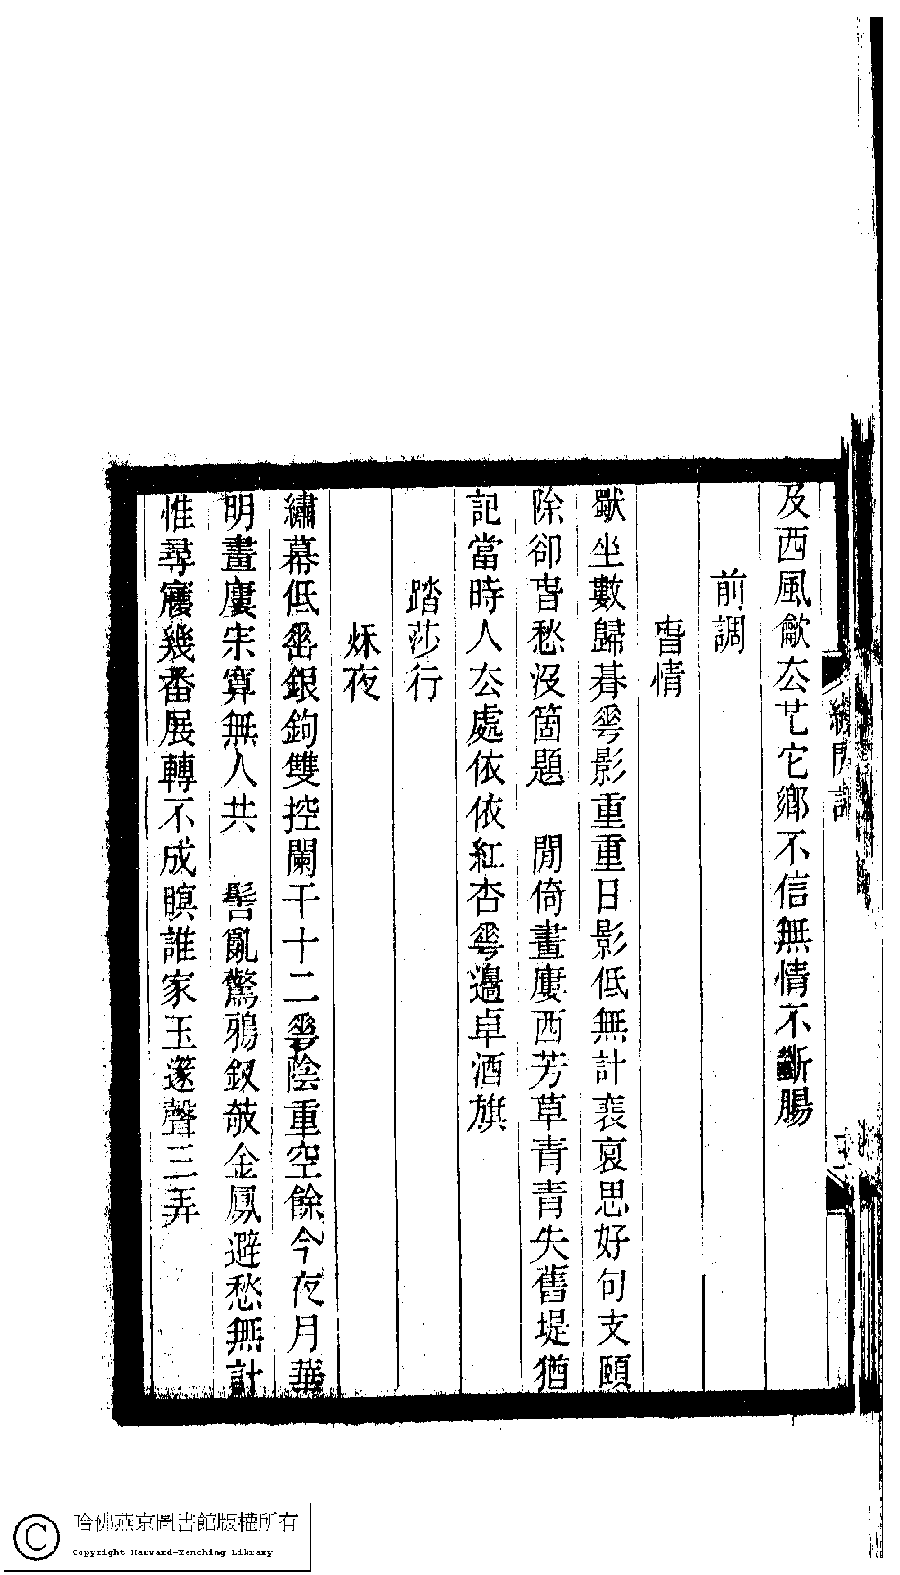 及西風歈厺芒它鄉不信無情不斷腸
前調
旾情
獃坐數歸碁雩影重重日影低無計裵裒思好句支頤
除卻旾愁沒箇題　閒倚畫廔西芳草青青失舊堤猶
記當時人厺處依依紅杏雩邊卓酒旗
踏莎行
秌夜
繡幕低䍃銀鉤雙控闌干十二雩陰重空餘今夜月華
明畫廔宋算無人共　髻亂驚鴉釵攲金鳳避愁無計
惟尋㝱幾番展轉不成瞑誰家玉邃聲三弄
哈佛燕京圖書館版權所有
Copyright Harvard-Yenching Library